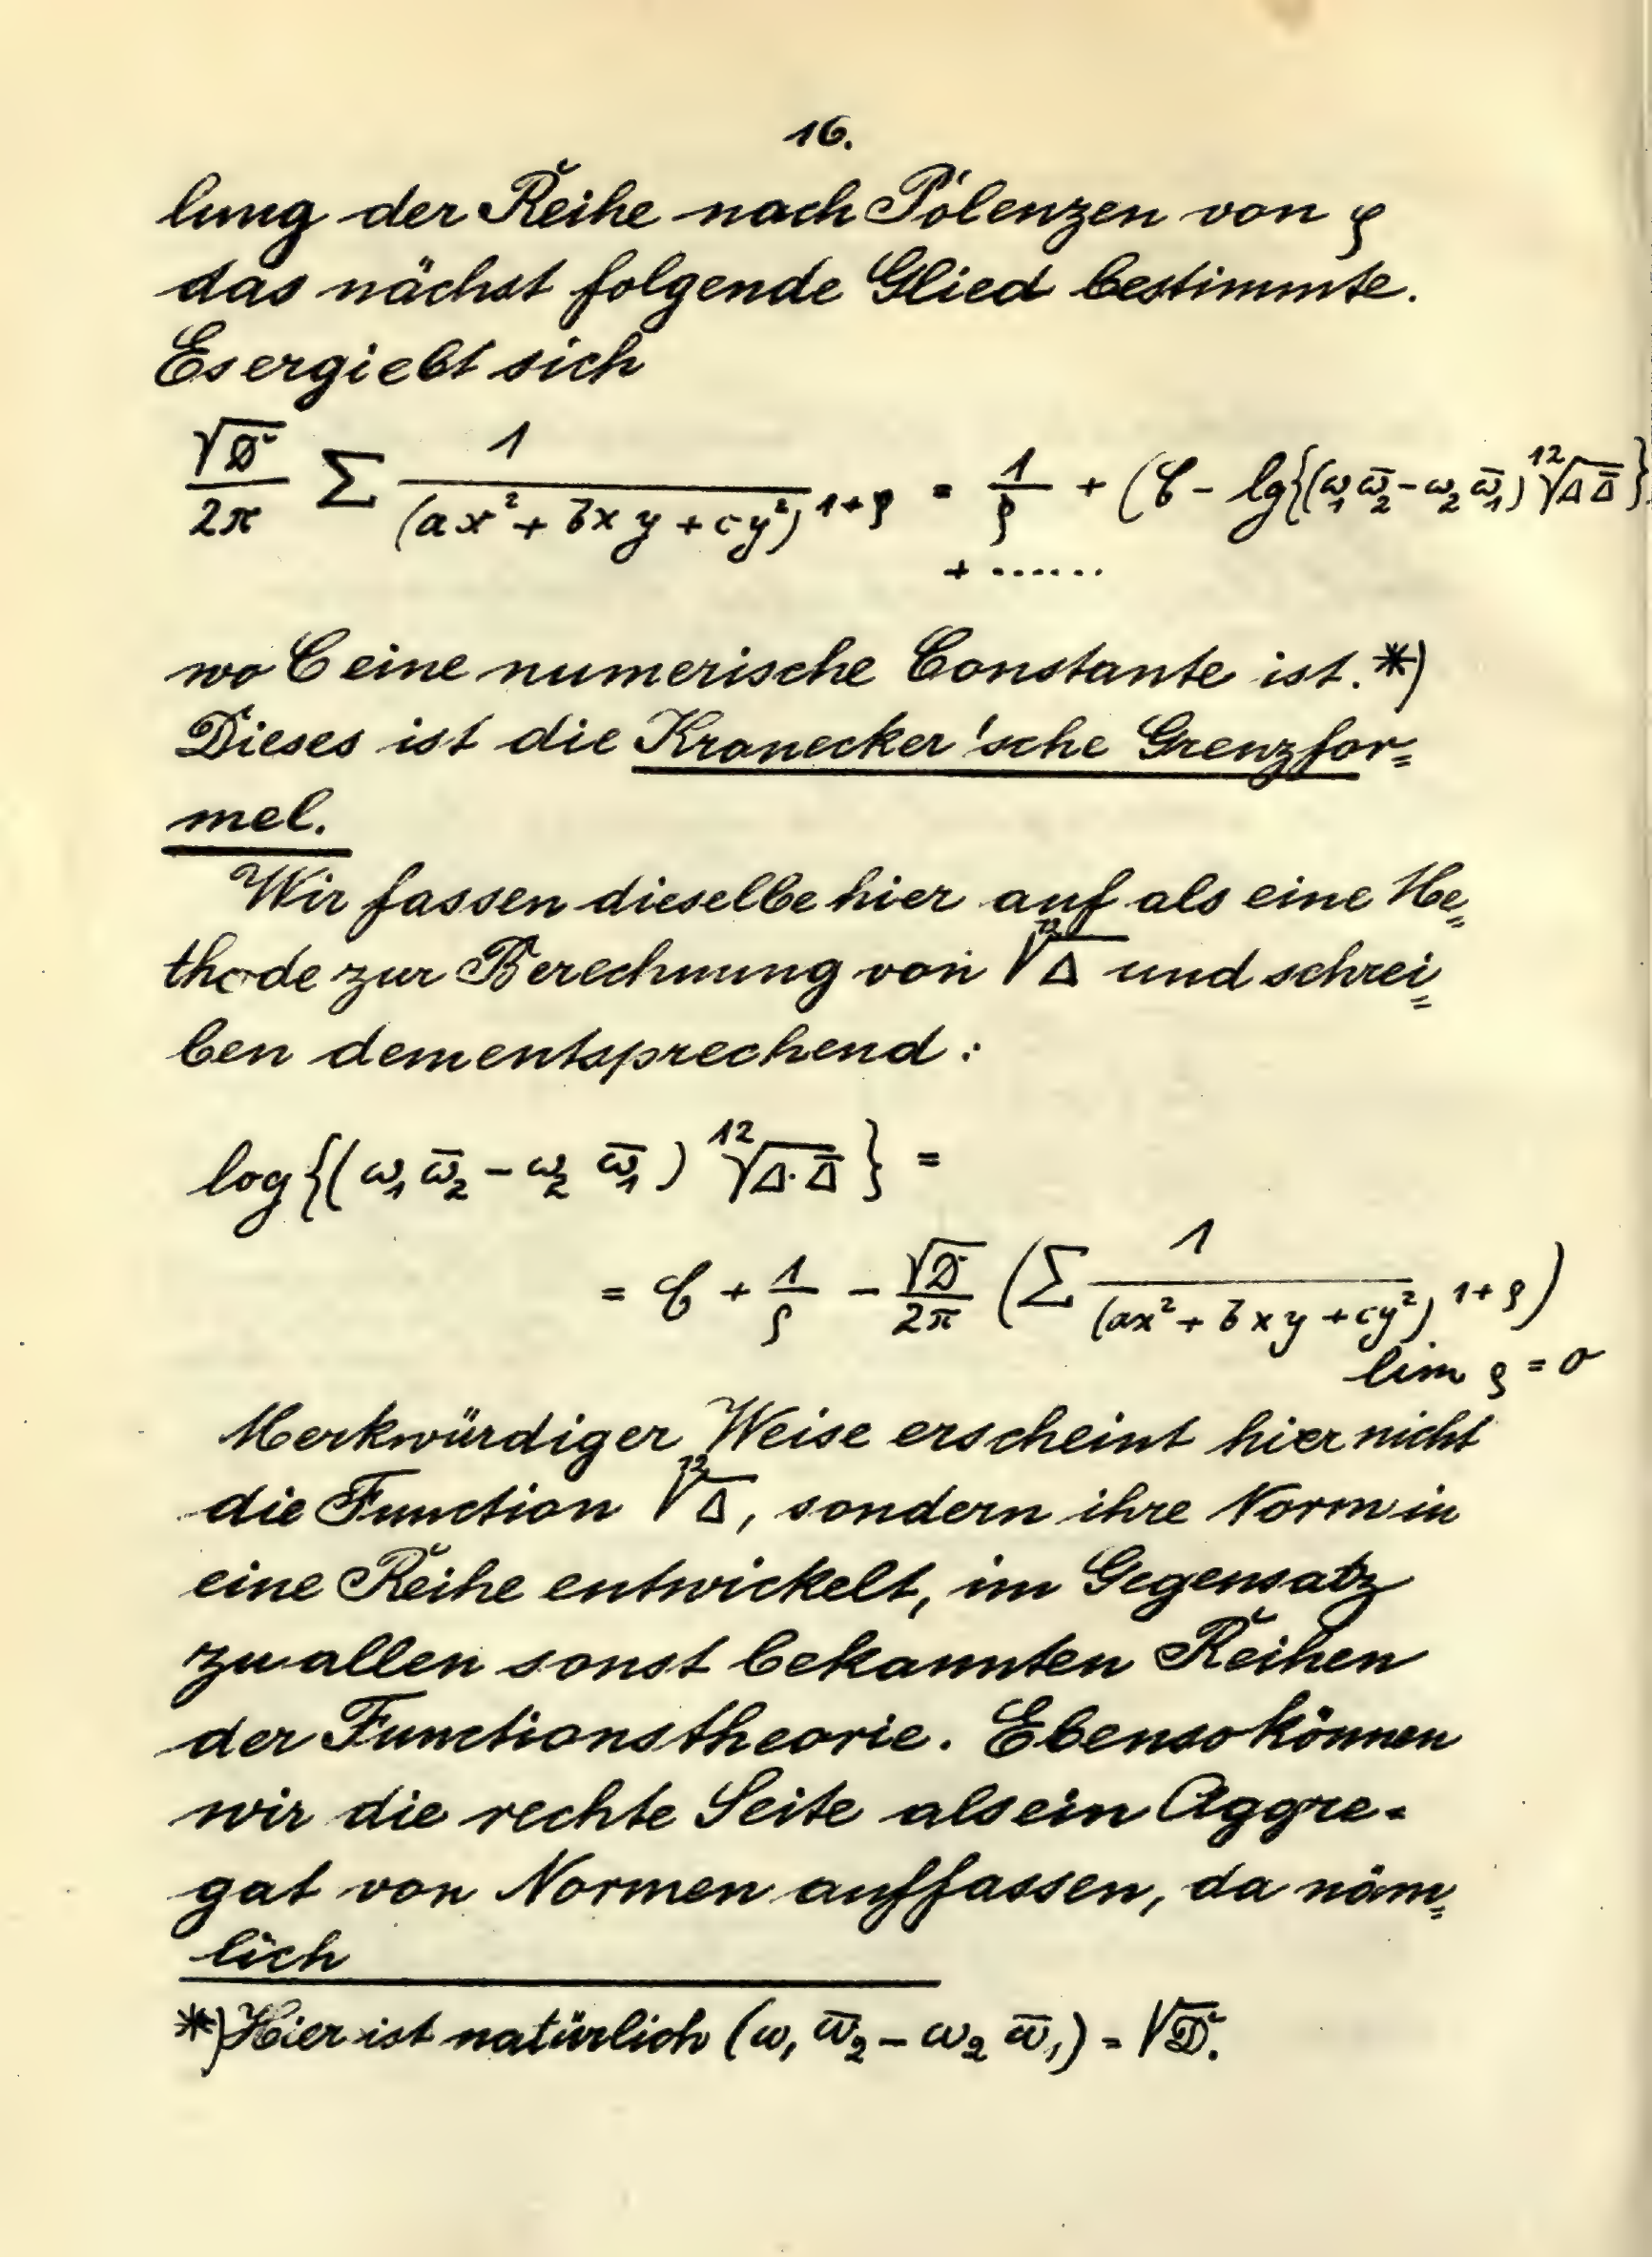 16.
lung der Reihe nach Potenzen von ρ
das nächst folgende Glied bestimmte.
Es ergiebt sich
√D/2π Σ 1/(ax² + bxy + cy²)^{1+ρ} = 1/ρ + (C - lg{(ω₁ω̄₂ - ω₂ω̄₁) ¹²√ΔΔ̄}
+ ......
wo C eine numerische Constante ist.*)
Dieses ist die Kronecker'sche Grenzfor=
mel.
Wir fassen dieselbe hier auf als eine Me=
thode zur Berechnung von ¹²√Δ und schrei=
ben dementsprechend:
log{(ω₁ω̄₂ - ω₂ω̄₁) ¹²√Δ·Δ̄} =
= C + 1/ρ - √D/2π (Σ 1/(ax² + bxy + cy²)^{1+ρ})
lim ρ = 0
Merkwürdiger Weise erscheint hier nicht
die Function ¹²√Δ, sondern ihre Norm in
eine Reihe entwickelt, im Gegensatz
zu allen sonst bekannten Reihen
der Functionstheorie. Ebenso können
wir die rechte Seite als ein Aggre=
gat von Normen auffassen, da näm=
lich
*) Hier ist natürlich (ω₁ω̄₂ - ω₂ω̄₁) = √D.